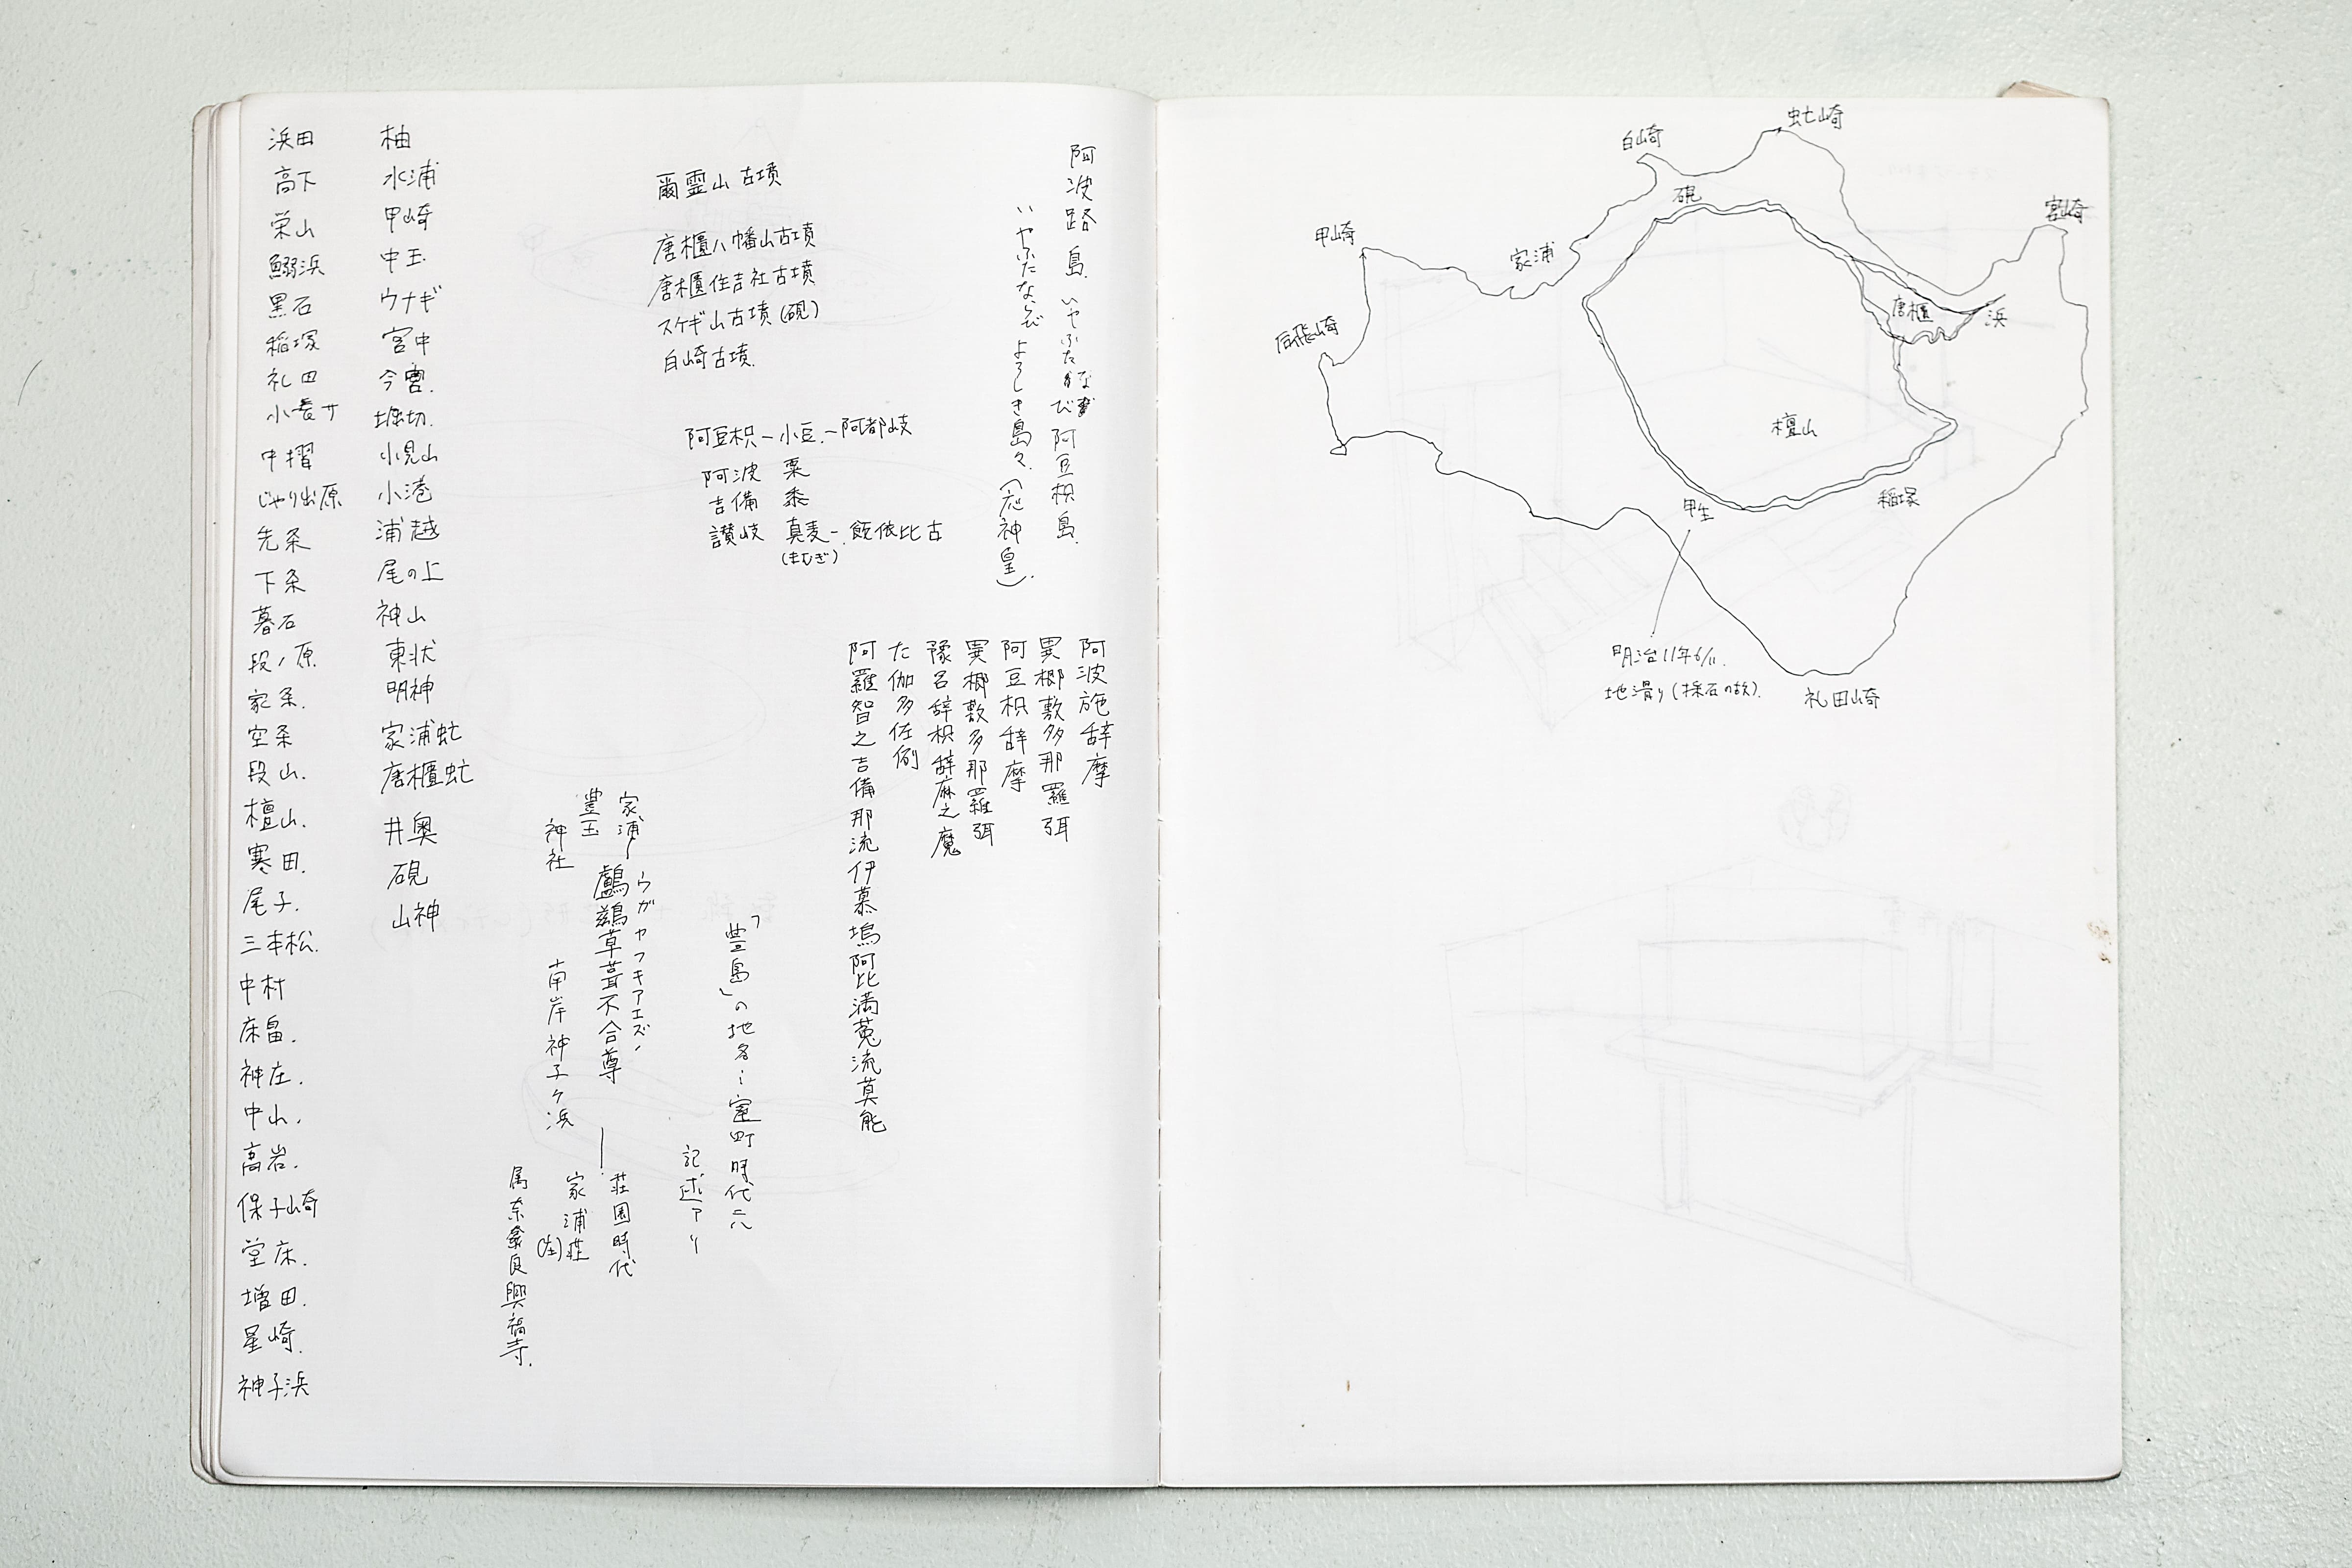 浜田
高下
栄山
鰯浜
黒石
稲塚
礼田
中摺
じゃり出原
先条
下条
暮石
段ノ原
家条
空条
段山.
檀山.
寒田.
尾子.
三本松.
中村
床畠.
神在.
中山.
高岩.
保子崎
堂床.
増田.
星崎.
神子浜
柚
水浦
甲崎
中玉
ウナギ
宮中
今宮.
堀切.
小見山
小港
浦越
尾の上
神山
東状
明神
家浦虻
唐櫃虻
井奥
硯
山神
爾霊山古墳
唐櫃八幡山古墳
唐櫃住吉社古墳
スケギ山古墳(硯)
白崎古墳.
阿豆枳ー小豆.ー阿都岐
阿波 粟
吉備 黍
讃岐 真麦ー.飯依比古
(まむぎ)
阿波路島.いやふたならび阿豆枳島.
いやふたならび よろしき島々.(応神皇).
阿波施辞摩
異椰敷多那羅弭
阿豆枳辞摩
異椰敷多那羅弭
豫呂辞枳辞麻之魔
た伽多佐例
阿羅智之吉備那流伊慕塢阿比満菟流莫能
「豊島」の地名…室町時代ニハ
記述アリ
家浦ー
豊玉
神社
ウガヤフキアエズノ
鸕鷀草葺不合尊
南岸神子ヶ浜
荘園時代
家浦荘
(注)
属奈良興福寺.
虻崎
白崎
宮崎
硯
甲崎
家浦
唐櫃
浜
后飛崎
檀山
稲塚
甲生
明治11年6/11.
地滑り(採石の故).
礼田崎